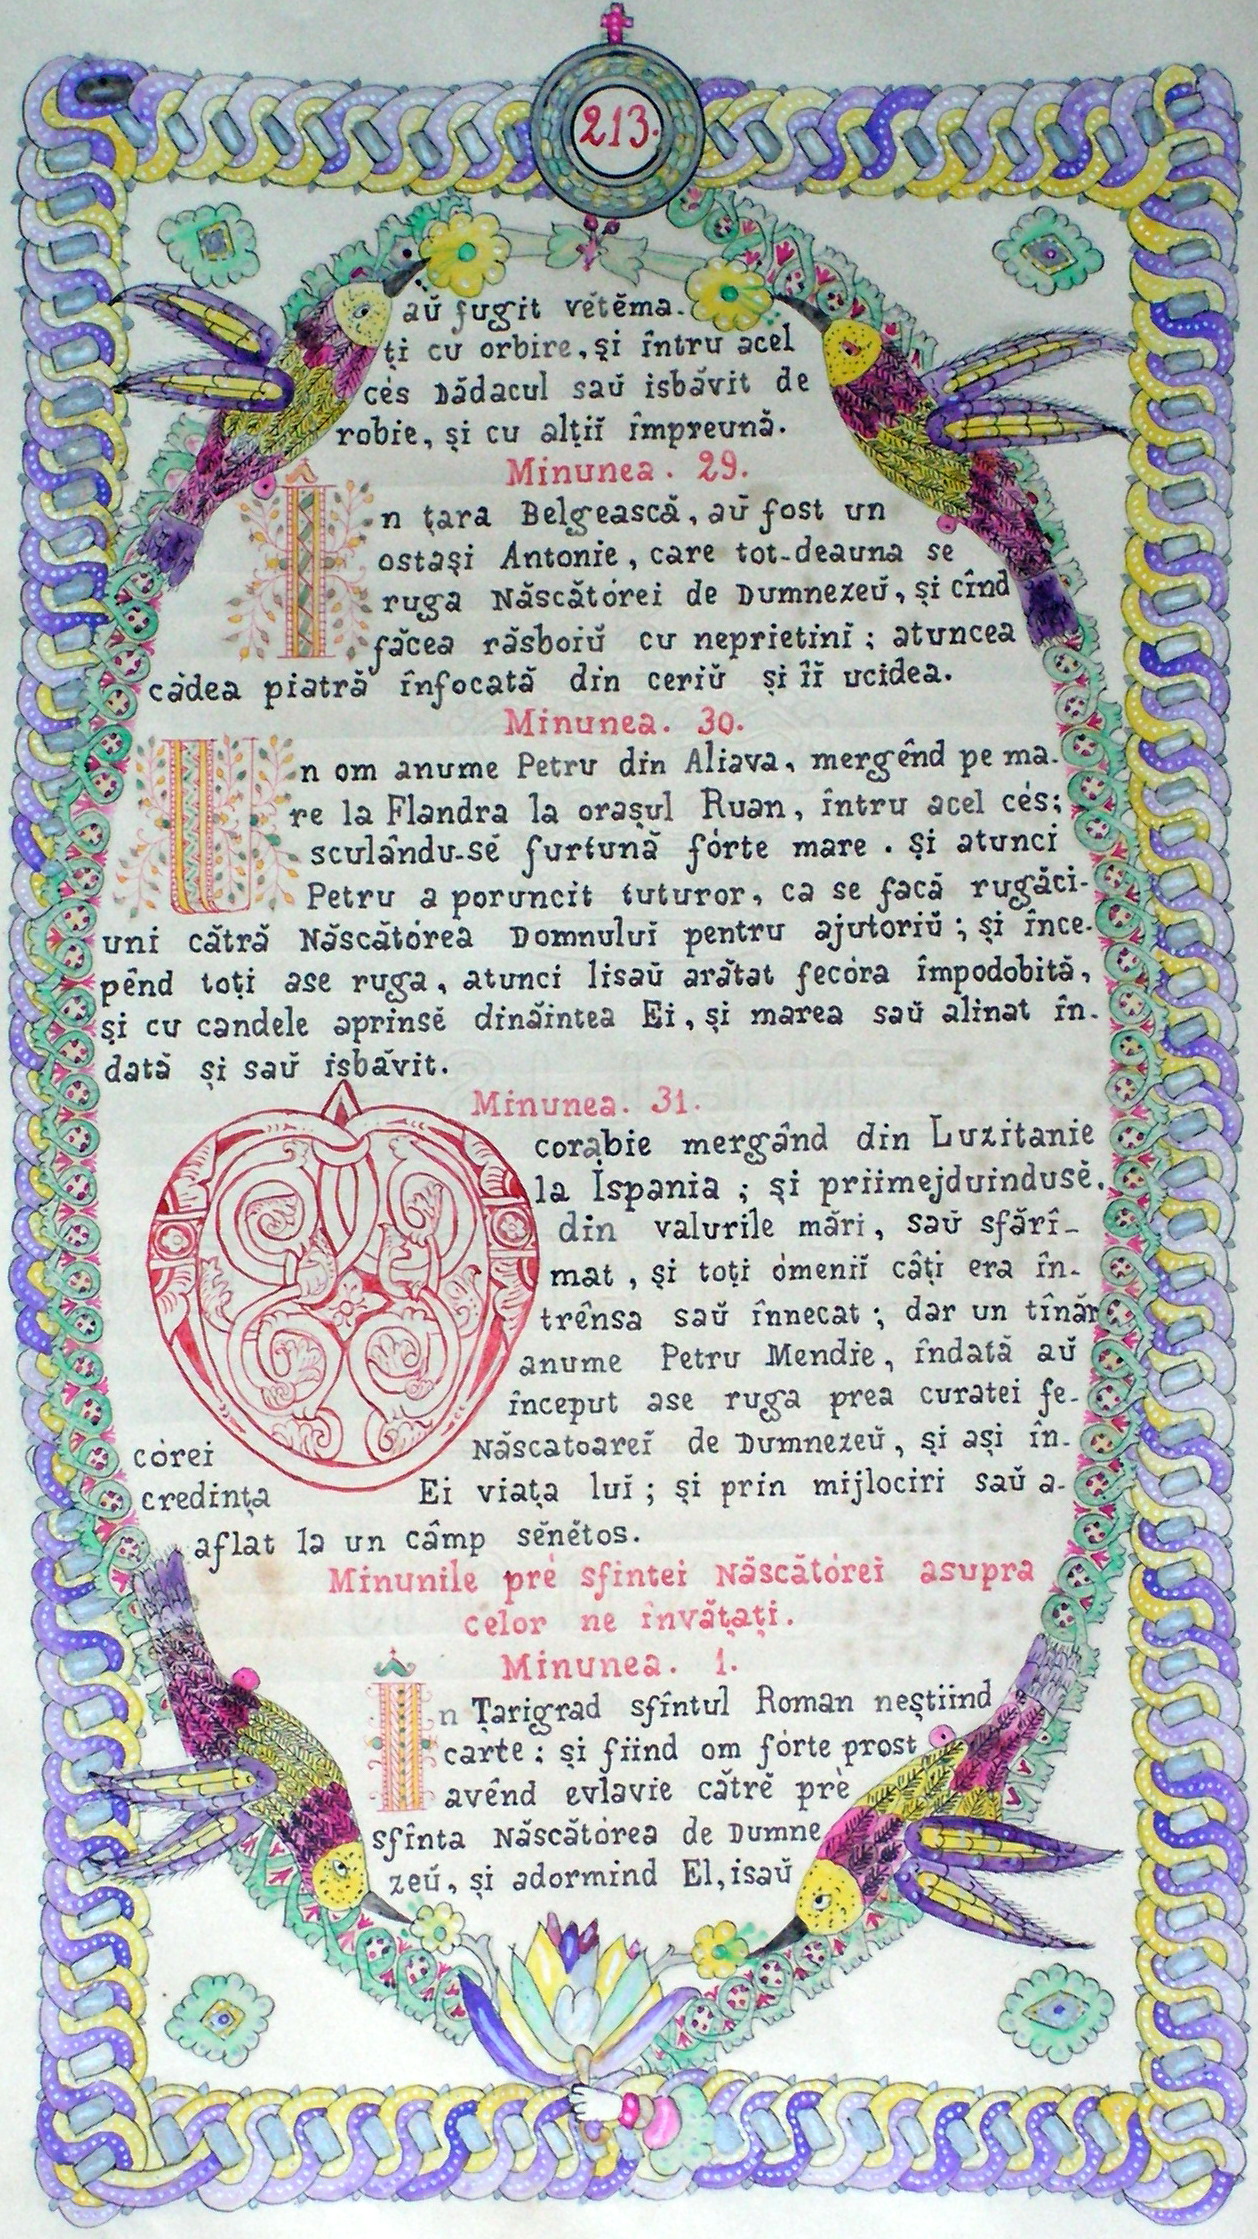 213.
aŭ fugit vĕtĕma-
ți cu orbire, și întru acel
cés Dădacul saŭ isbăvit de
robie, și cu alțiĭ împreună.
Minunea. 29.
In țara Belgească, aŭ fost un
ostași Antonie, care tot-deauna se
ruga Născătórei de Dumnezeŭ, și cînd
făcea răsboiŭ cu neprietinĭ; atuncea
cădea piatră înfocată din ceriŭ și îĭ ucidea.
Minunea. 30.
Un om anume Petru din Aliava, mergênd pe ma-
re la Flandra la orașul Ruan, întru acel cés;
sculându-sĕ furtună fórte mare. și atunci
Petru a poruncit tuturor, ca se facă rugăci-
uni cătră Născătórea Domnuluĭ pentru ajutoriŭ; și înce-
pênd toți ase ruga, atunci lisaŭ arătat fecóra împodobită,
și cu candele aprinsĕ dinăintea Ei, și marea saŭ alinat în-
dată și saŭ isbăvit.
Minunea. 31.
O corabie mergând din Luzitanie
la Ispania; și priimejduindusĕ.
din valurile mări, saŭ sfărî-
mat, și toți ómeniĭ câți era în-
trênsa saŭ înnecat; dar un tînăr
anume Petru Mendie, îndată aŭ
început ase ruga prea curatei fe-
córei Născatoareĭ de Dumnezeŭ, și ași în-
credința Ei viața luĭ; și prin mijlociri saŭ a-
aflat la un câmp sĕnĕtos.
Minunile pré sfintei Născătórei asupra
celor ne învățați.
Minunea. 1.
In Țarigrad sfîntul Roman neștiind
carte; și fiind om fórte prost
avênd evlavie cătrĕ pré
sfînta Născătórea de Dumne
zeŭ, și adormind El, isaŭ